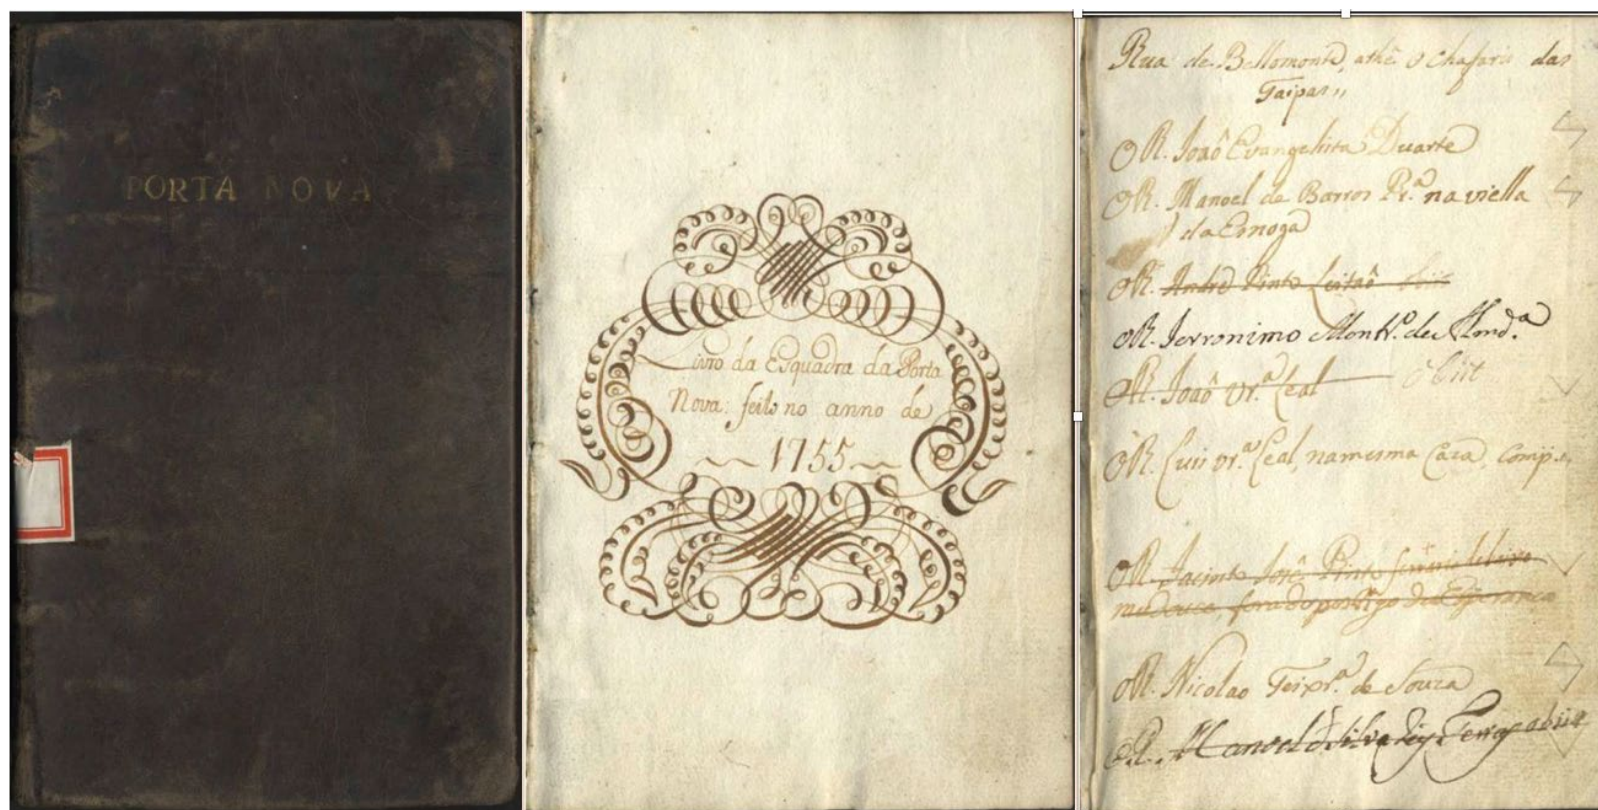 PORTA NOVA
Livro da Esquadra da Porta
Nova; feito no anno de
1755
Rua de Bellomonte, athe o Chafaris das
Taipas,,
O R. João Evangelista Duarte
O R. Manoel de Barros Pr.ª na viella
da Esnoga
O R. André Pinto Leitão obiit
O R. Jerronimo Montr.º de Almd.ª
O R. João Vr.ª Leal obiit
O R. Luis Vr.ª Leal, na mesma Caza,
O R. Jacinto José Pinto
fora do postigo da Esperança
O R. Nicolao Teixr.ª de Souza
O R. Manoel da Silva abiit